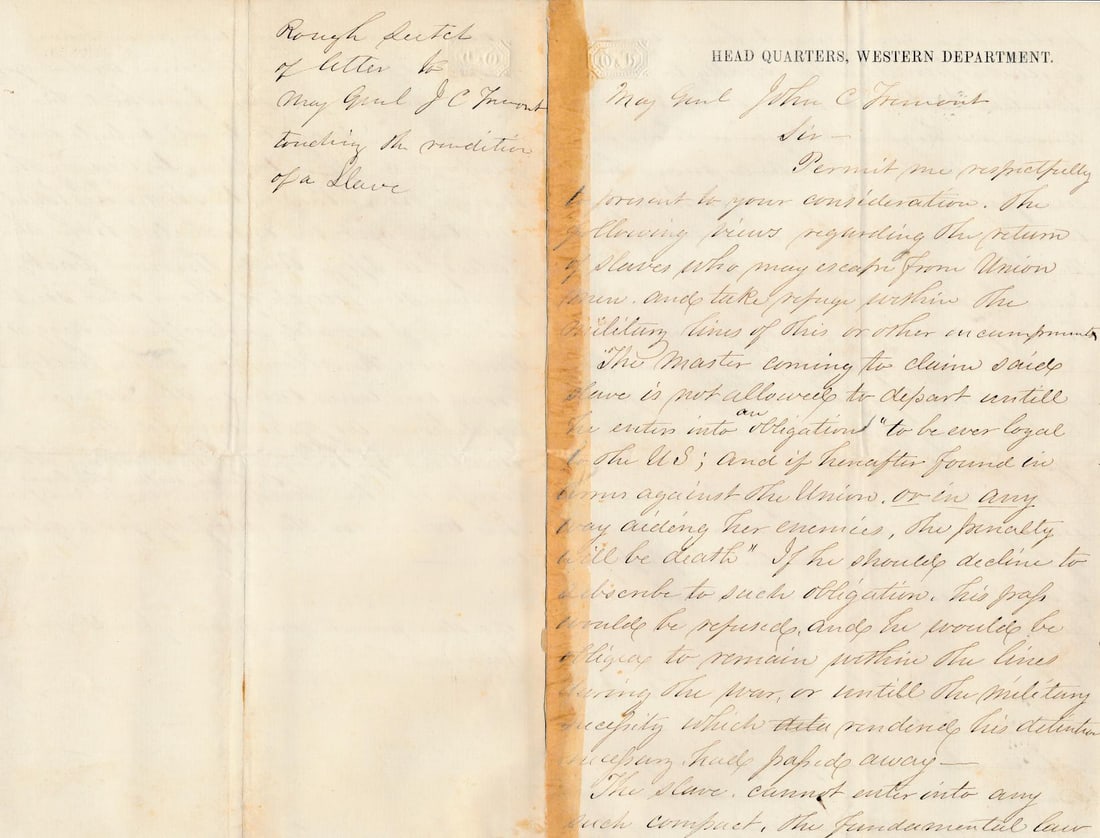 Rough Scetch
of letter to
May Genl J C Fremont
touching the rendition
of a Slave
HEAD QUARTERS, WESTERN DEPARTMENT.
May Genl John C Fremont
Sir —
Permit me respectfully
to present to your consideration. The
following views regarding the return
of slaves who may escape from Union
men. and take refuge within the
military lines of this or other encampments
"The Master coming to claim said
slave is not allowed to depart untill
he enters into an obligation "to be ever loyal
to the US; and if hereafter found in
arms against the Union. or in any
way aiding her enemies, the penalty
will be death" If he should decline to
subscribe to such obligation. his pass
would be refused. and he would be
obliged to remain within the lines
during the war, or untill the military
necessity which rendered his detention
necessary. had passed away —
The slave. cannot enter into any
such compact. the fundamental law